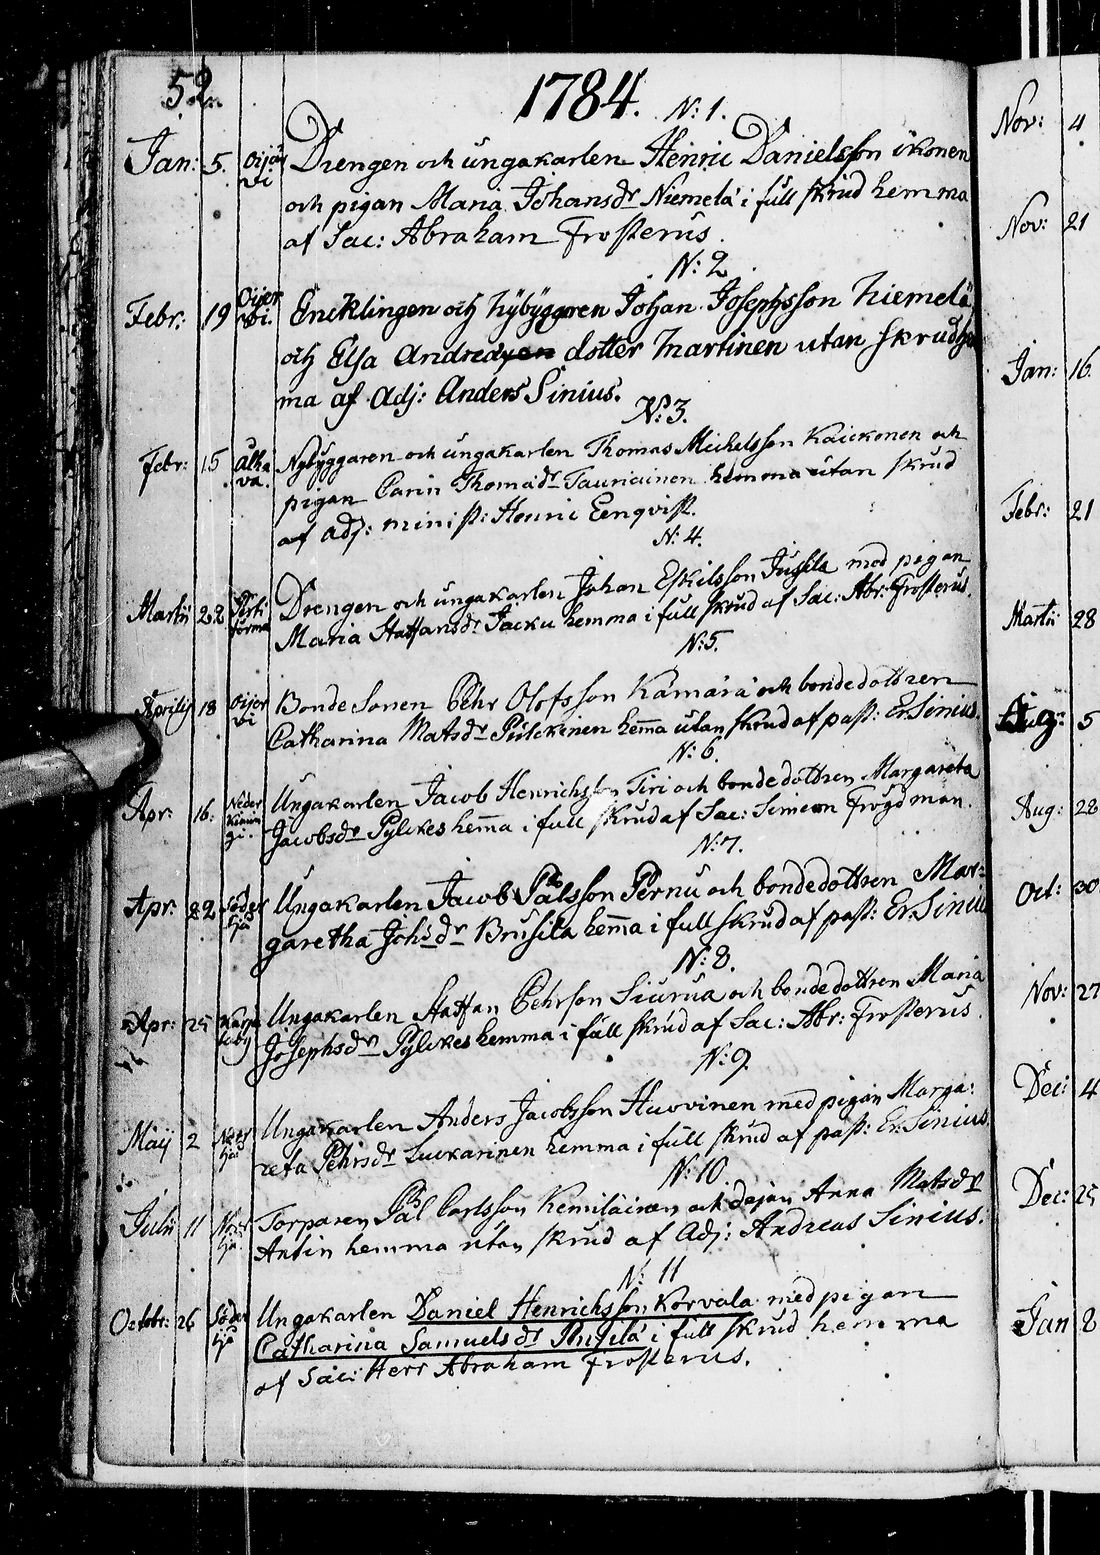 52.
1784.
N:1.
Jan: 5. Oijär vi Drengen och ungakarlen Henric Danielsson ikonen
och pigan Maria Johansdr Niemelä i full skrud hemma
af Sac: Abraham Frosterus.
N:2
Febr: 19 Oijer vi. Encklingen och Nybyggaren Johan Josephsson Niemelä
och Elsa Andredyen dotter Martinen utan skrud he
ma af Adj: Anders Sinius.
N:3.
Febr: 15 alha va. Nybyggaren och ungakarlen Thomas Michelsson Kaickonen och
pigan Carin Thomædr Tauriainen hemma utan skrud
af adj: minist: Henric Eenqvist.
N:4.
Martii 22 Drengen och ungakarlen Johan Eskilsson Jussila med pigan
Maria Staffansdr Jacku hemma i full skrud af Sac: Abr: Frosterus.
N:5.
Aprilis 18 Oijer vi Bonde Sonen Pehr Olofsson Kämärä och bondedottren
Catharina Matsdr Pulckinen hem̄a utan skrud af past: Er: Sinius.
N:6.
Apr: 16. Neder Kiimin gi. Ungakarlen Jacob Henrichsson Tiri och bondedottren Margareta
Jacobsdr Pylckes hem̄a i full skrud af Sac: Simeon Frogdman.
N:7.
Apr: 22 Söder ijo Ungakarlen Jacob Pålsson Pernu och bondedottren Mar:
garetha Johsdr Brusila hem̄a i full skrud af past: Er: Sinius
N:8.
Apr: 25 Karja laby Ungakarlen Staffan Pehrson Siurua och bondedottren Maria
Josephsdr Pylckes hemma i full skrud af Sac: Abr: Frosterus.
N:9.
Maij 2 Norr ijo Ungakarlen Anders Jacobsson Huovinen med pigan Marga:
reta Pehrsdr Luckarinen hemma i full skrud af past: Er: Sinius.
N:10.
Julii 11 Norr ijo. Torparen Pål Carlsson Kemiläinen och dejan Anna Matsdr
Antin hemma utan skrud af Adj: Andreas Sinius.
N: 11
Octobr: 26 Söder ijo Ungakarlen Daniel Henrichsson Korvala med pigan
Catharina Samuelsdr i full skrud hemma
af Sac: Herr Abraham Frosterus.
Nov: 4
Nov: 21
Jan: 16.
Febr: 21
Martii 28
Aug: 5
Aug: 28
Oct: 30
Nov: 27
Dec: 4
Dec: 25
Jan 8